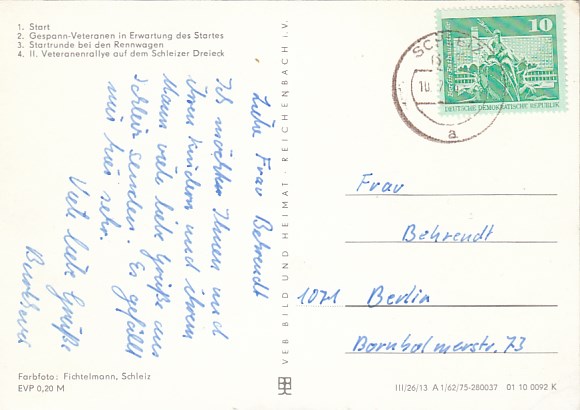 1. Start
2. Gespann-Veteranen in Erwartung des Startes
3. Startrunde bei den Rennwagen
4. II. Veteranenrallye auf dem Schleizer Dreieck
Liebe Frau Behrendt
Ich möchte Ihnen und
ihren Kindern und ihrem
Mann viele liebe Grüße aus
Schleiz senden. Es gefällt
mir hier sehr.
Viele liebe Grüße
Farbfoto: Fichtelmann, Schleiz
EVP 0,20 M
VEB BILD UND HEIMAT · REICHENBACH i. V.
10
DEUTSCHE DEMOKRATISCHE REPUBLIK
a
Frau
Behrendt
1071 Berlin
Bornholmerstr. 73
III/26/13 A 1/62/75-280037 01 10 0092 K